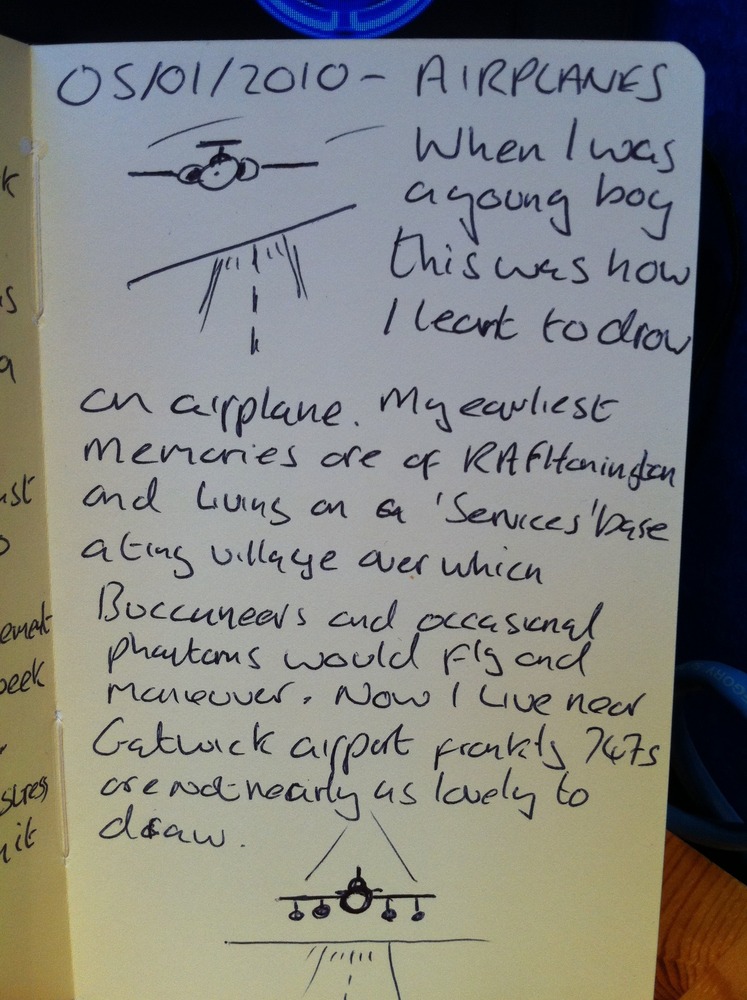 05/01/2010 - AIRPLANES
When I was
a young boy
this was how
I learnt to draw
an airplane. My earliest
memories are of RAF Honington
and living on a 'Services' base
a tiny village over which
Buccaneers and occasional
phantoms would fly and
maneuver. Now I live near
Gatwick airport frankly 747s
are not nearly as lovely to
draw.
k
s
a
ust
o
ement
peek
stress
it